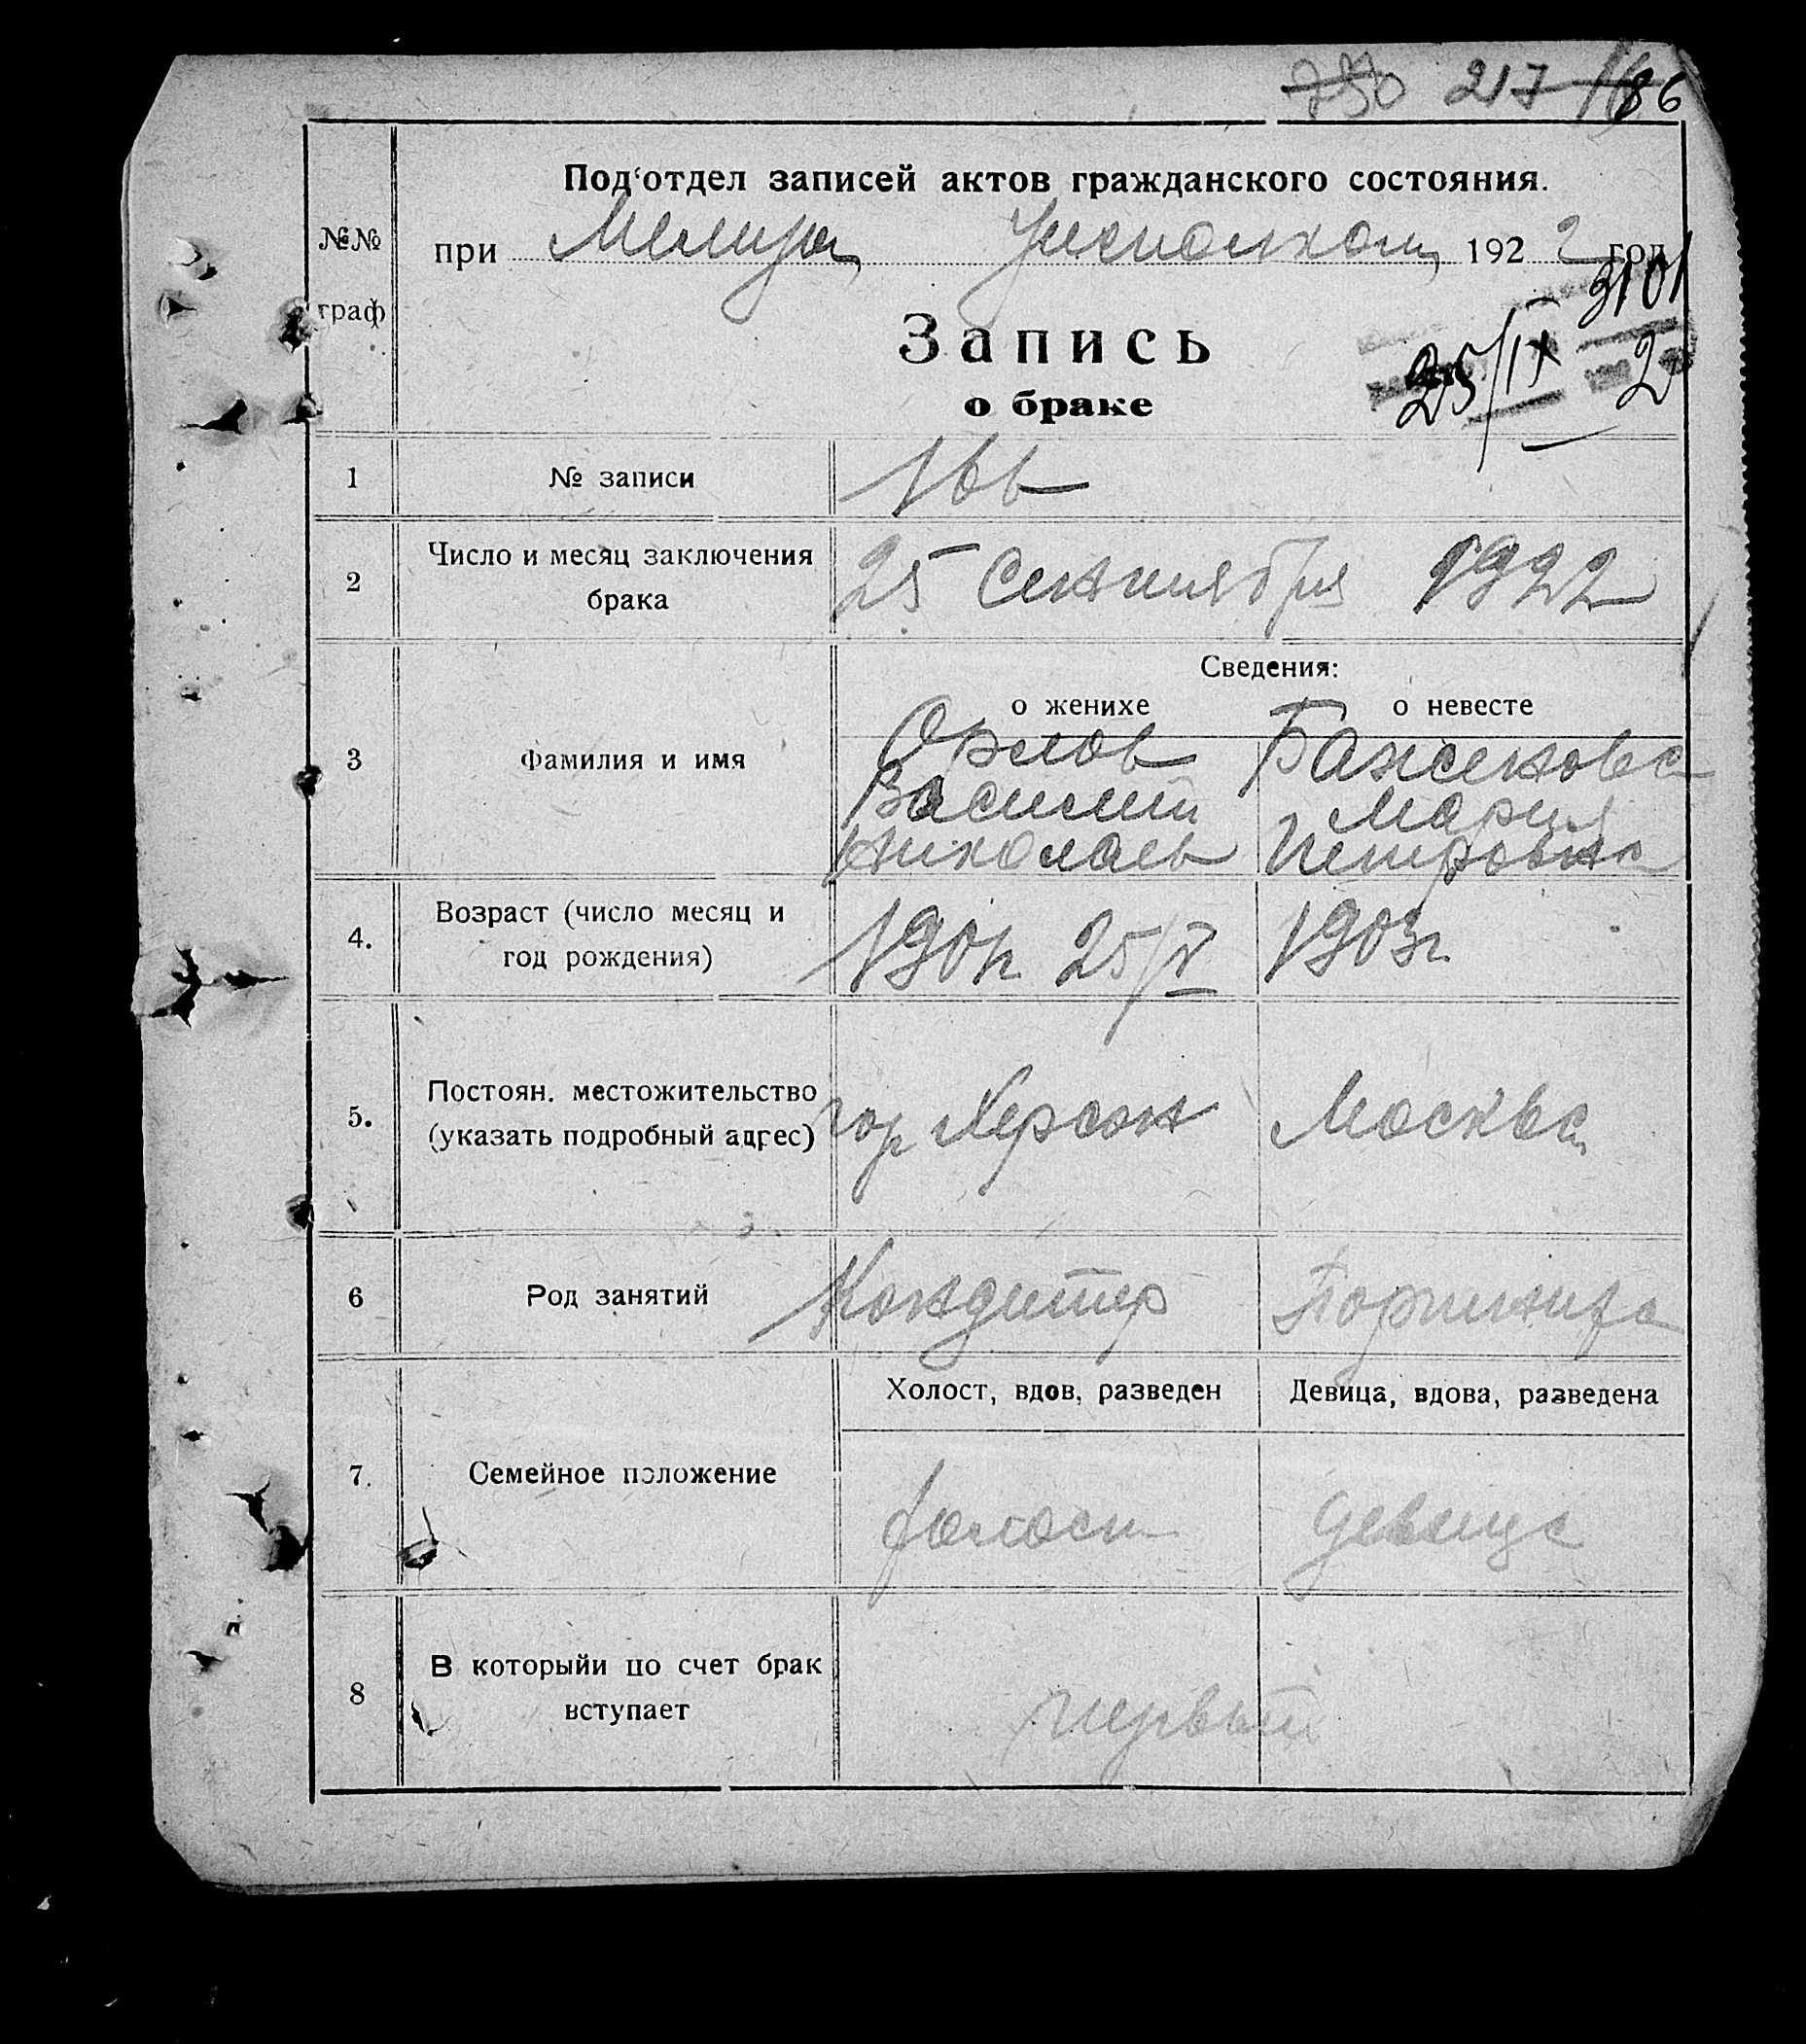 217 86
Под‘отдел записей актов гражданского состояния.
№№
граф
при Уисполком 1922 год
3101
Запись
25/IX 2
о браке
1 № записи 166
2 Число и месяц заключения
брака
25 Сентября 1922
Сведения:
о женихе о невесте
3 Фамилия и имя
Орлов Баженова
Василий Мария
Николаев Петровна
4. Возраст (число месяц и
год рождения)
1901г 25/V 1903г.
5. Постоян. местожительство
(указать подробный адрес)
гор Херсон Москва
6 Род занятий Кондитер
Холост, вдов, разведен Девица, вдова, разведена
7. Семейное положение холост девица
8 В которыйи по счет брак
вступает
первый